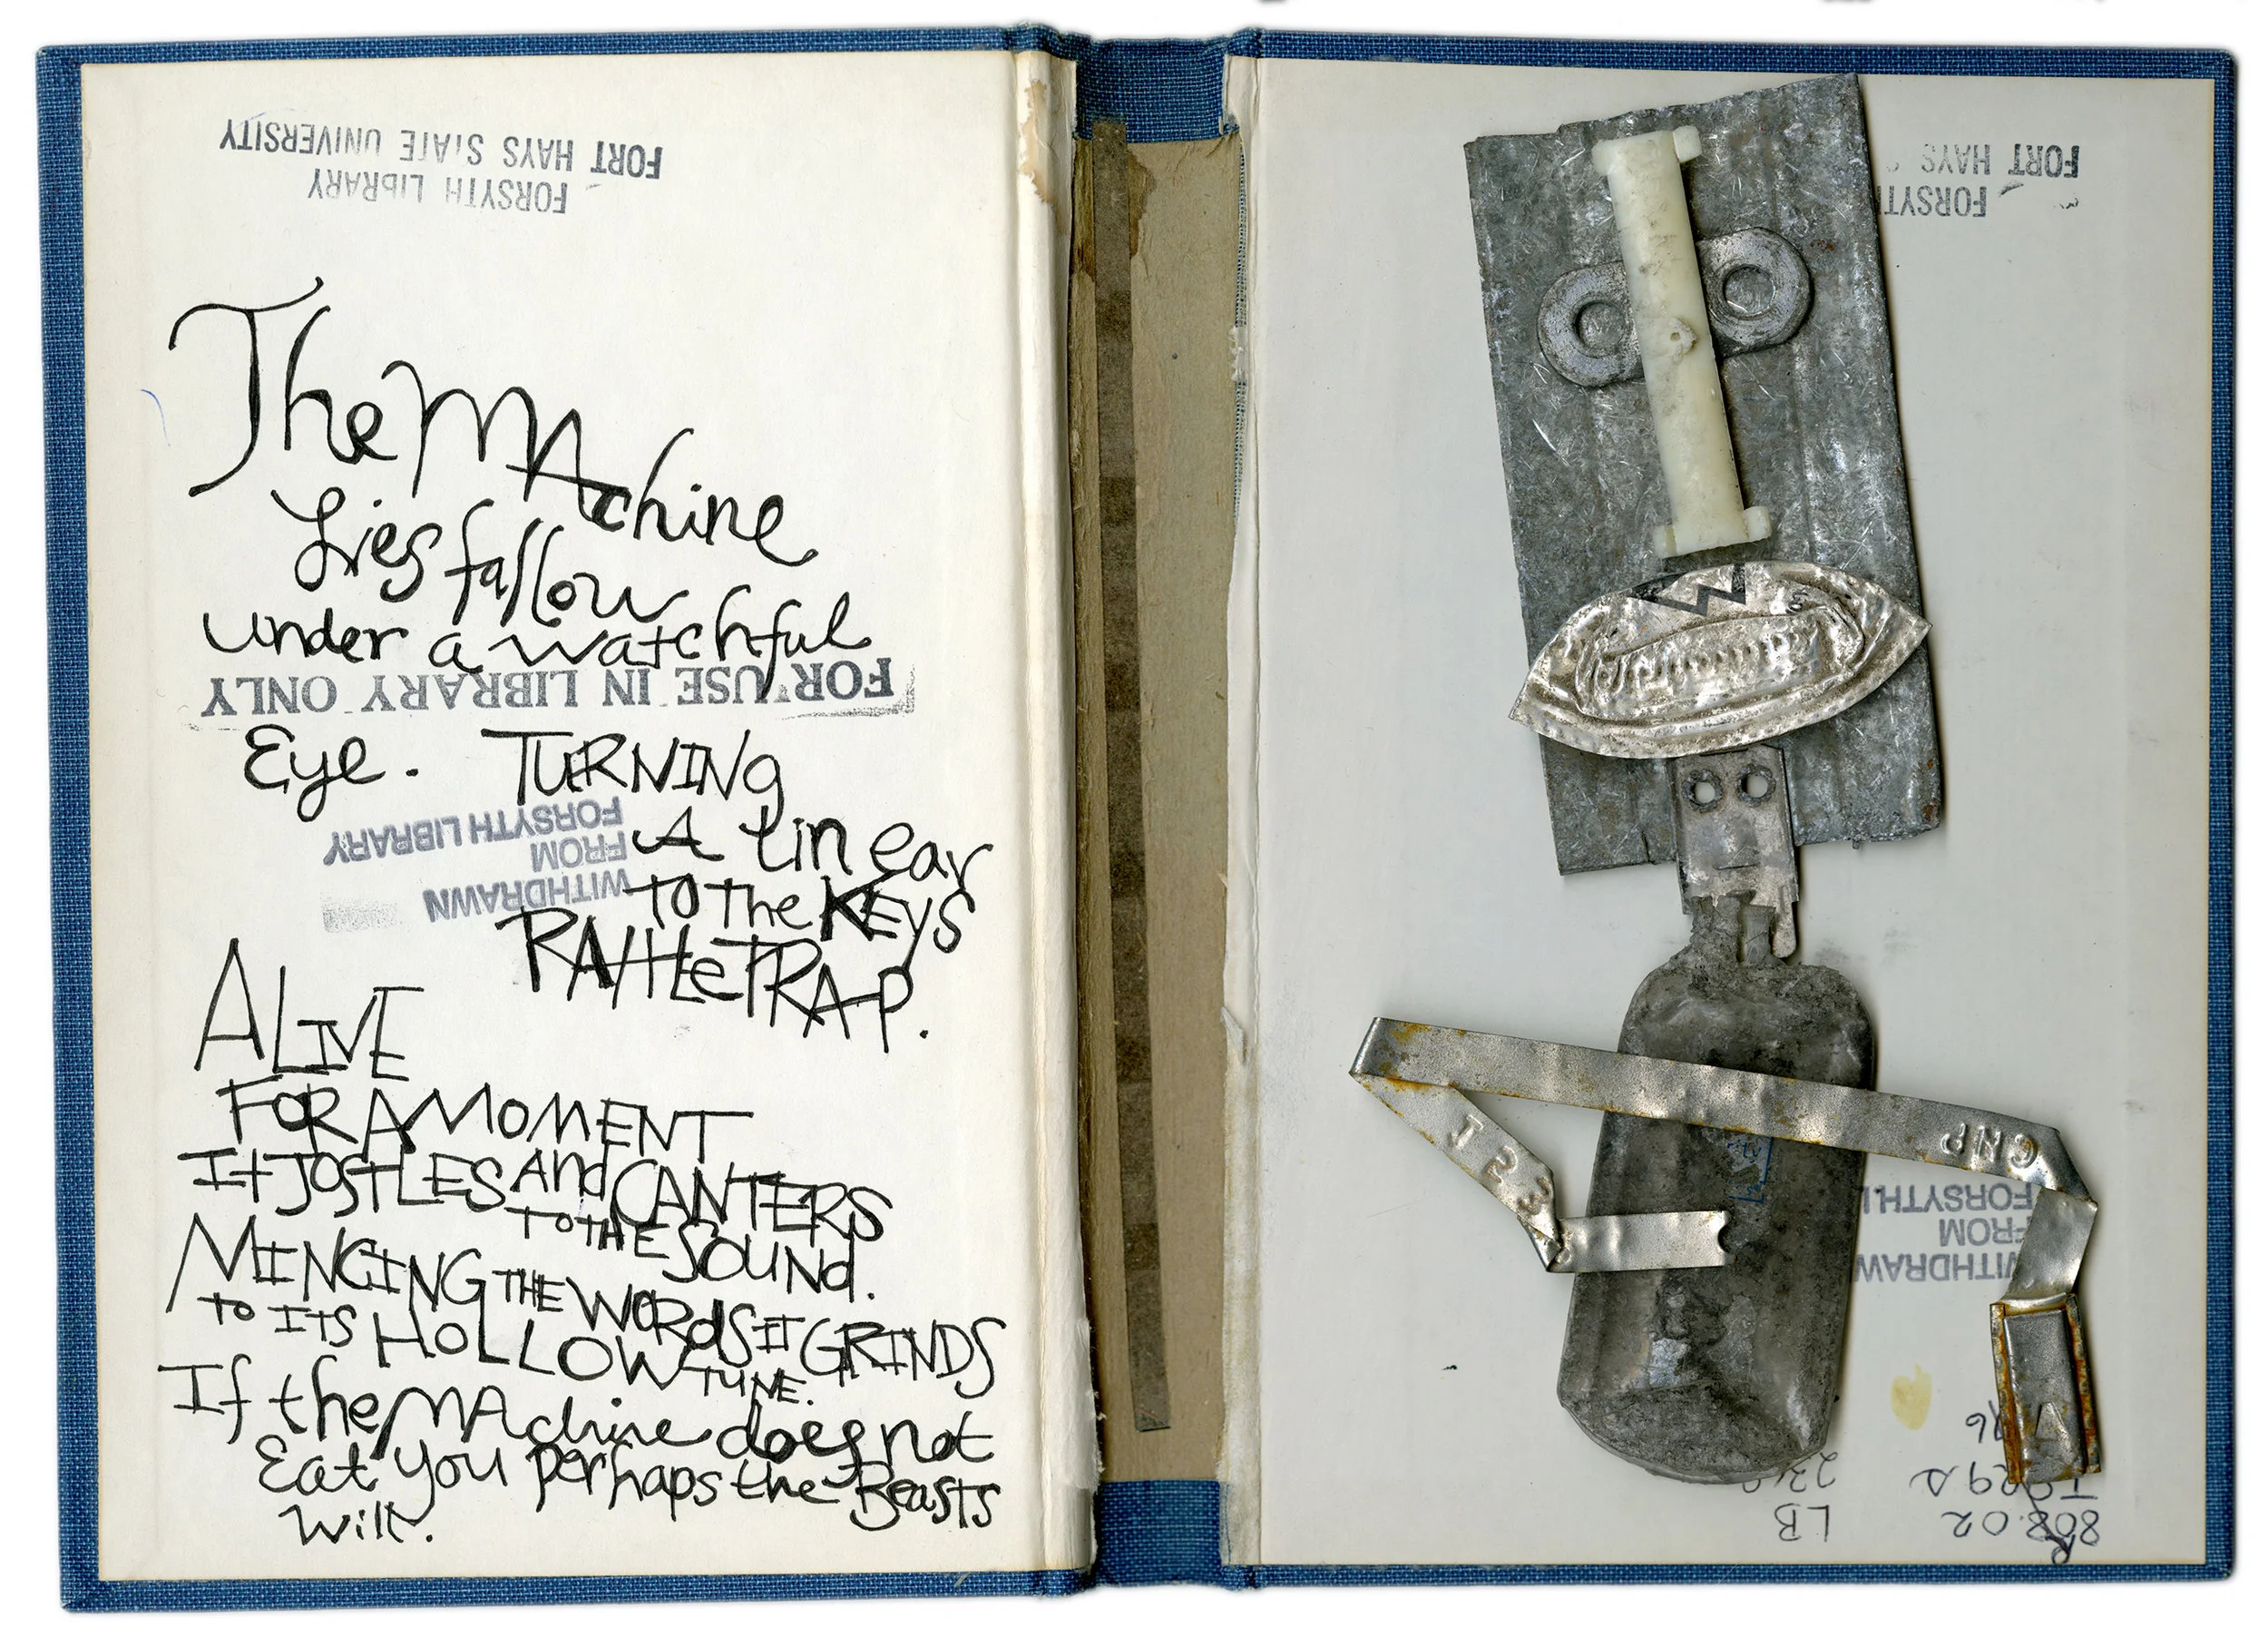 FORT HAYS STATE UNIVERSITY
FORSYTH LIBRARY
The MAchine
Lies fallow
under a watchful
FOR USE IN LIBRARY ONLY
Eye. TURNINg
FORSYTH LIBRARY
FROM
WITHDRAWN
A linear
TO The KEYS
RAttLeTRAP.
ALIVE
FOR A MOMENT
It JOSTLES ANd CANTERS
TO THE SOUNd.
MINCING THE WORdS IT GRINDS
TO ITS HOLLOW TUNE.
If the MAchine does not
Eat you perhaps the Beasts
Will.
FORT HAYS
FORSYT
W
CNP
123
FORSYTH L
FROM
WITHDRAW
LB
808.02